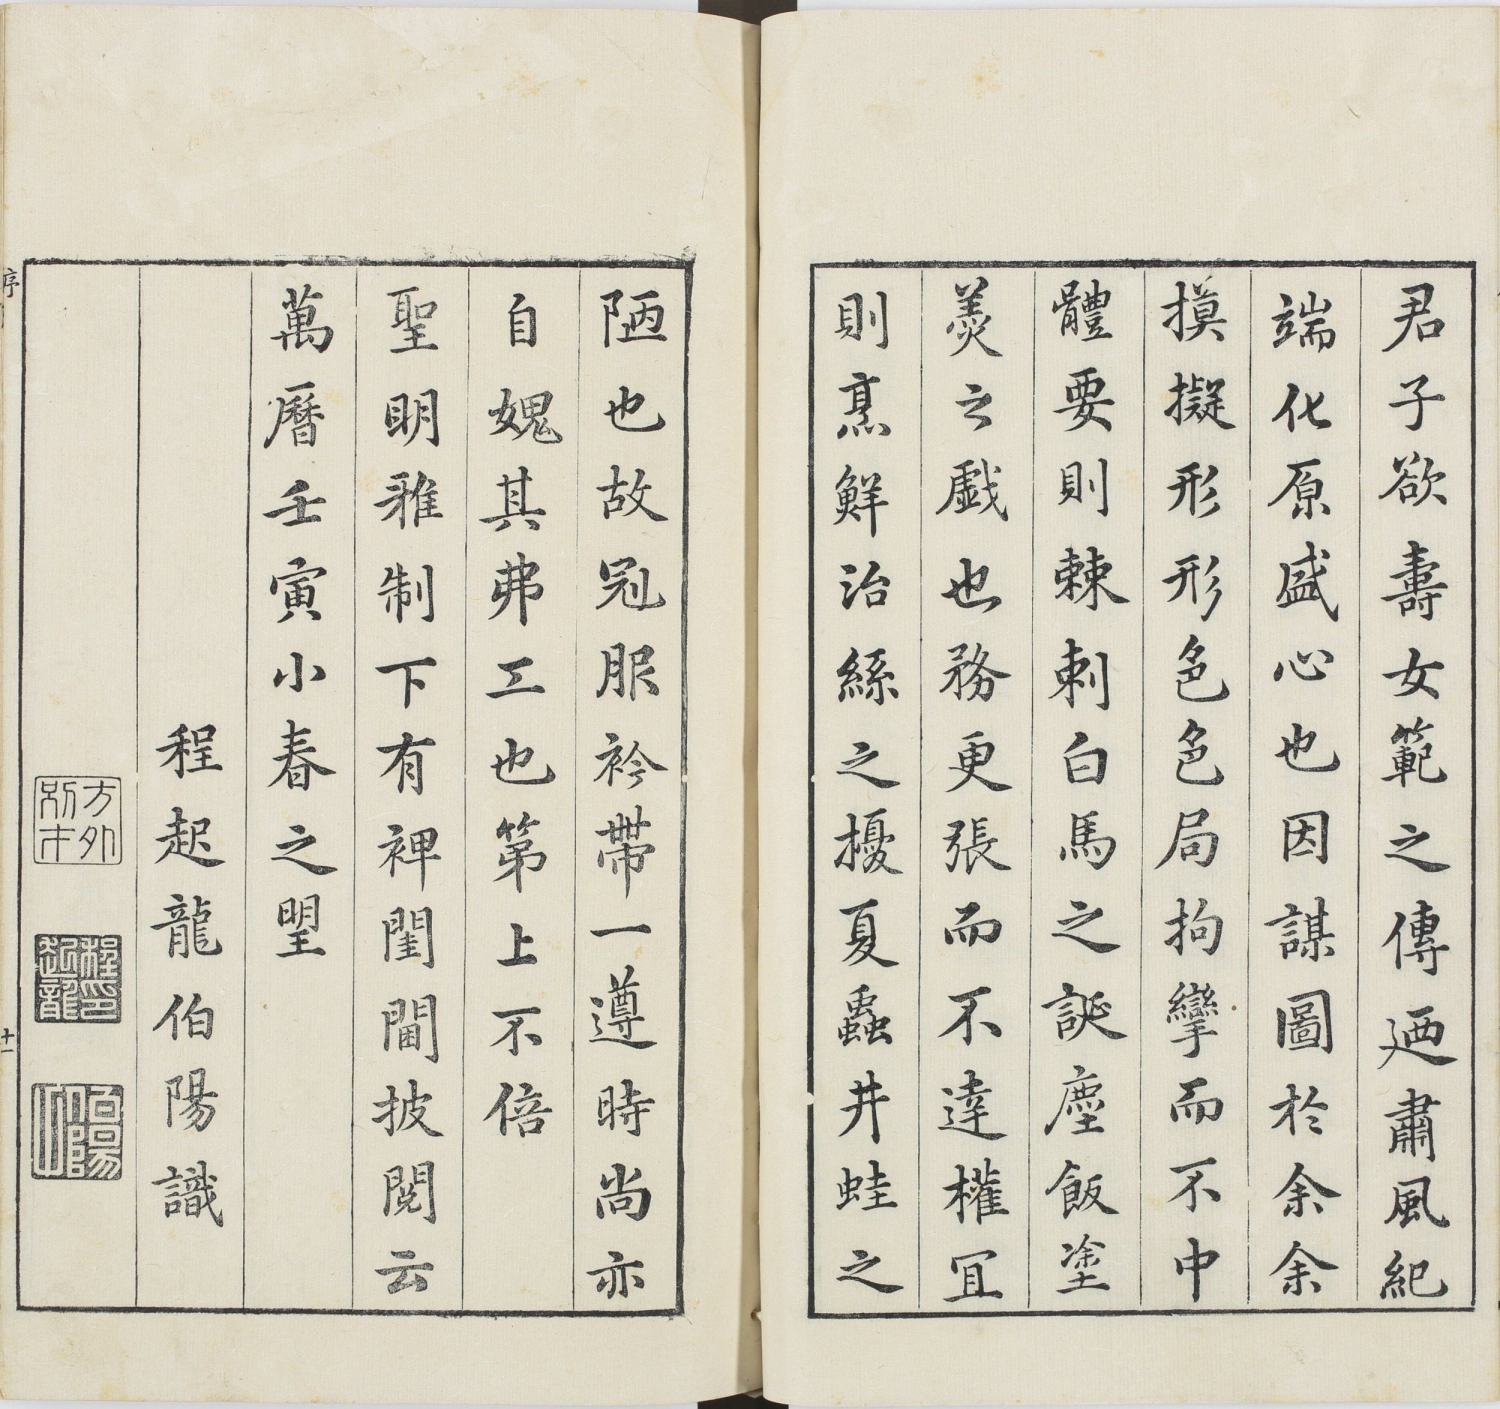 君子欲壽女範之傳廼肅風紀
端化原盛心也因謀圖於余余
摸擬形形色色局拘攣而不中
體要則棘刺白馬之誕塵飯塗
羮之戲也務更張而不達權宜
則烹鮮治絲之擾夏蟲井蛙之
陋也故冠服衿帶一遵時尚亦
自媿其弗工也第上不倍
聖明雅制下有裨閨閫披閱云
萬曆壬寅小春之朢
程起龍伯陽識
方外別才
程起龍印
伯陽
序
十一